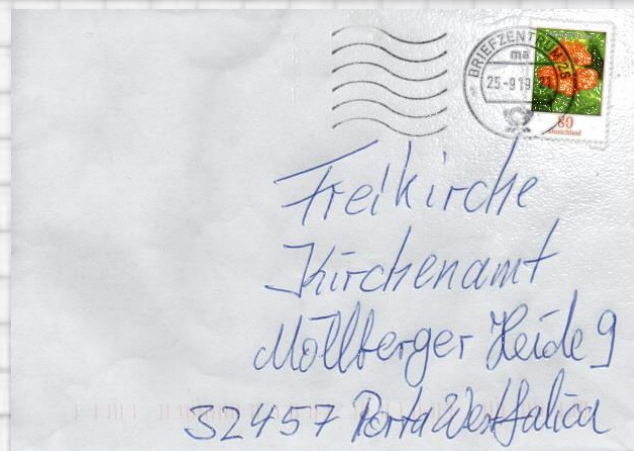 BRIEFZENTRUM 26
ma
25-9 19
80
Deutschland
Freikirche
Kirchenamt
Möllberger Heide 9
32457 Porta Westfalica